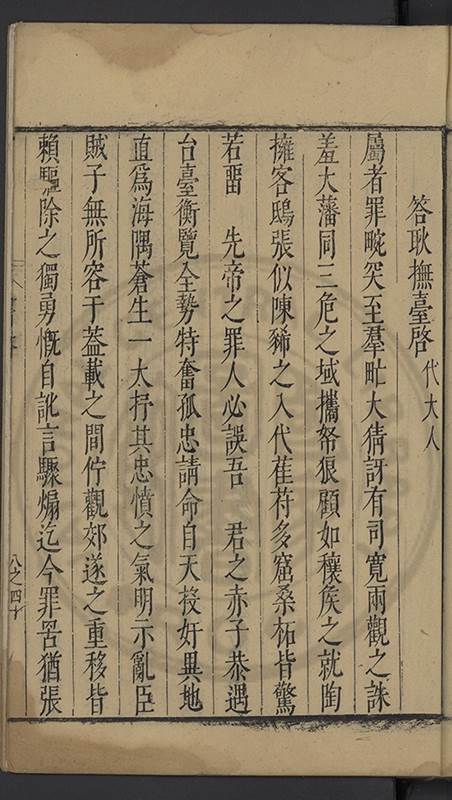 答耿撫臺啓 代大人
屬者罪畹哭至羣甿大猜訝有司寛兩觀之誅
羞大藩同三危之域攜帑狼顧如穰矦之就陶
擁客鴟張似陳豨之入代萑苻多窟桑柘皆驚
若畱 先帝之罪人必誤吾 君之赤子恭遇
台臺衡覽全勢特奮孤忠請命自天投奸異地
直爲海隅蒼生一太抒其忠憤之氣明示亂臣
賊子無所容于葢載之間佇觀郊遂之重移皆
賴驅除之獨勇慨自訛言驟煽迄今罪罟猶張
八之四十